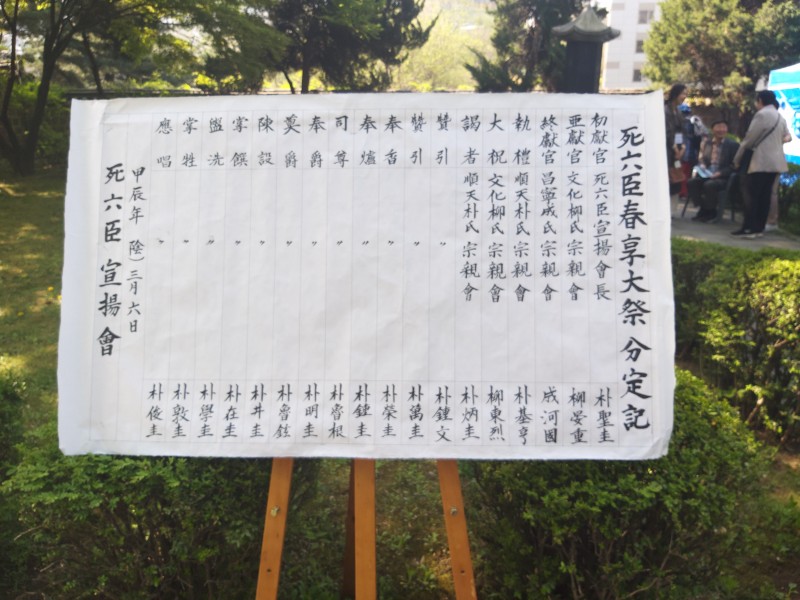 死六臣春享大祭分定記
初獻官 死六臣宣揚會長 朴聖圭
亞獻官 文化柳氏宗親會 柳晏重
終獻官 昌寧成氏宗親會 成河國
執禮 順天朴氏宗親會 朴基亨
大祝 文化柳氏宗親會 柳東烈
謁者 順天朴氏宗親會 朴炳圭
贊引 〃 朴鍾文
贊引 〃 朴萬圭
奉香 〃 朴榮圭
奉爐 〃 朴鍾圭
司尊 〃 朴嘗根
奉爵 〃 朴明圭
奠爵 〃 朴嘗鉉
陳設 〃 朴井圭
掌饌 〃 朴在圭
盥洗 〃 朴學圭
掌牲 〃 朴敦圭
應唱 〃 朴俊圭
甲辰年 陰) 三月六日
死六臣 宣揚會